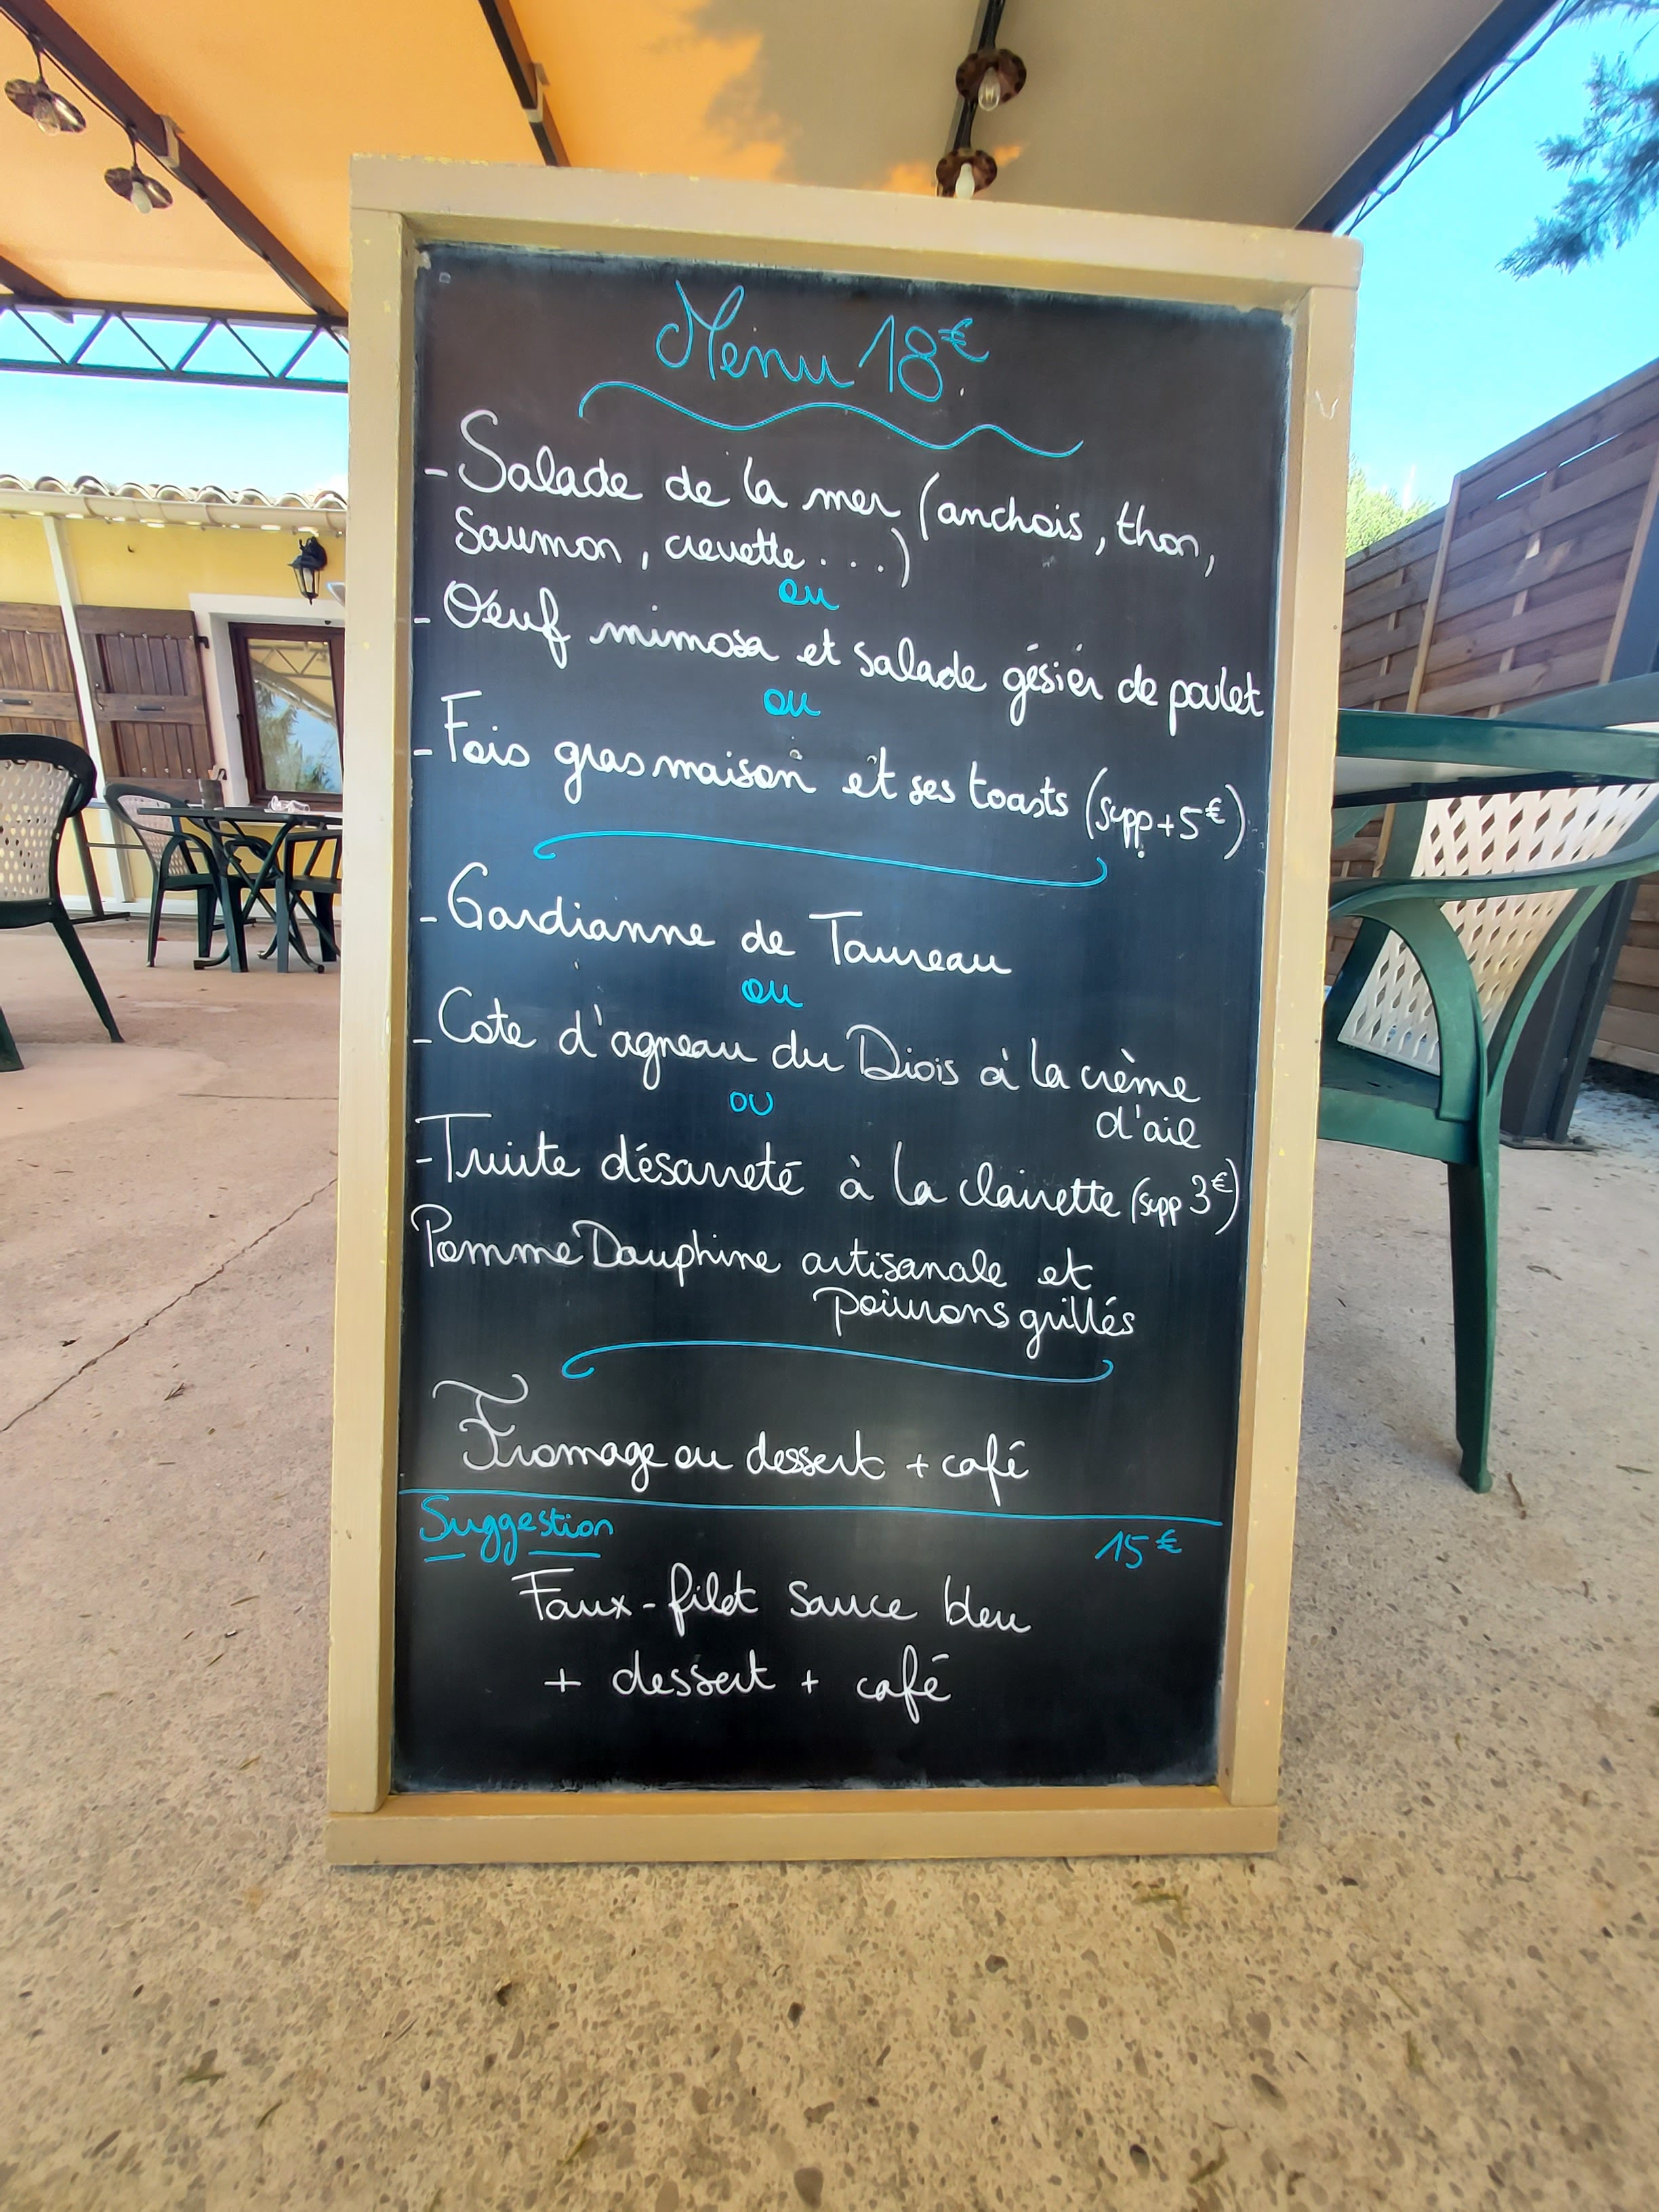 Menu 18€.
- Salade de la mer (anchois, thon,
saumon, crevette...)
ou
- Oeuf mimosa et salade gésier de poulet
ou
- Fois gras maison et ses toasts (supp + 5€)
- Gardianne de Taureau
ou
- Cote d'agneau du Diois à la crème
d'ail
ou
- Truite désarreté à la clairette (supp 3€)
Pomme Dauphine artisanale et
poivrons grillés
Fromage ou dessert + café
Suggestion 15€
Faux-filet sauce bleu
+ dessert + café